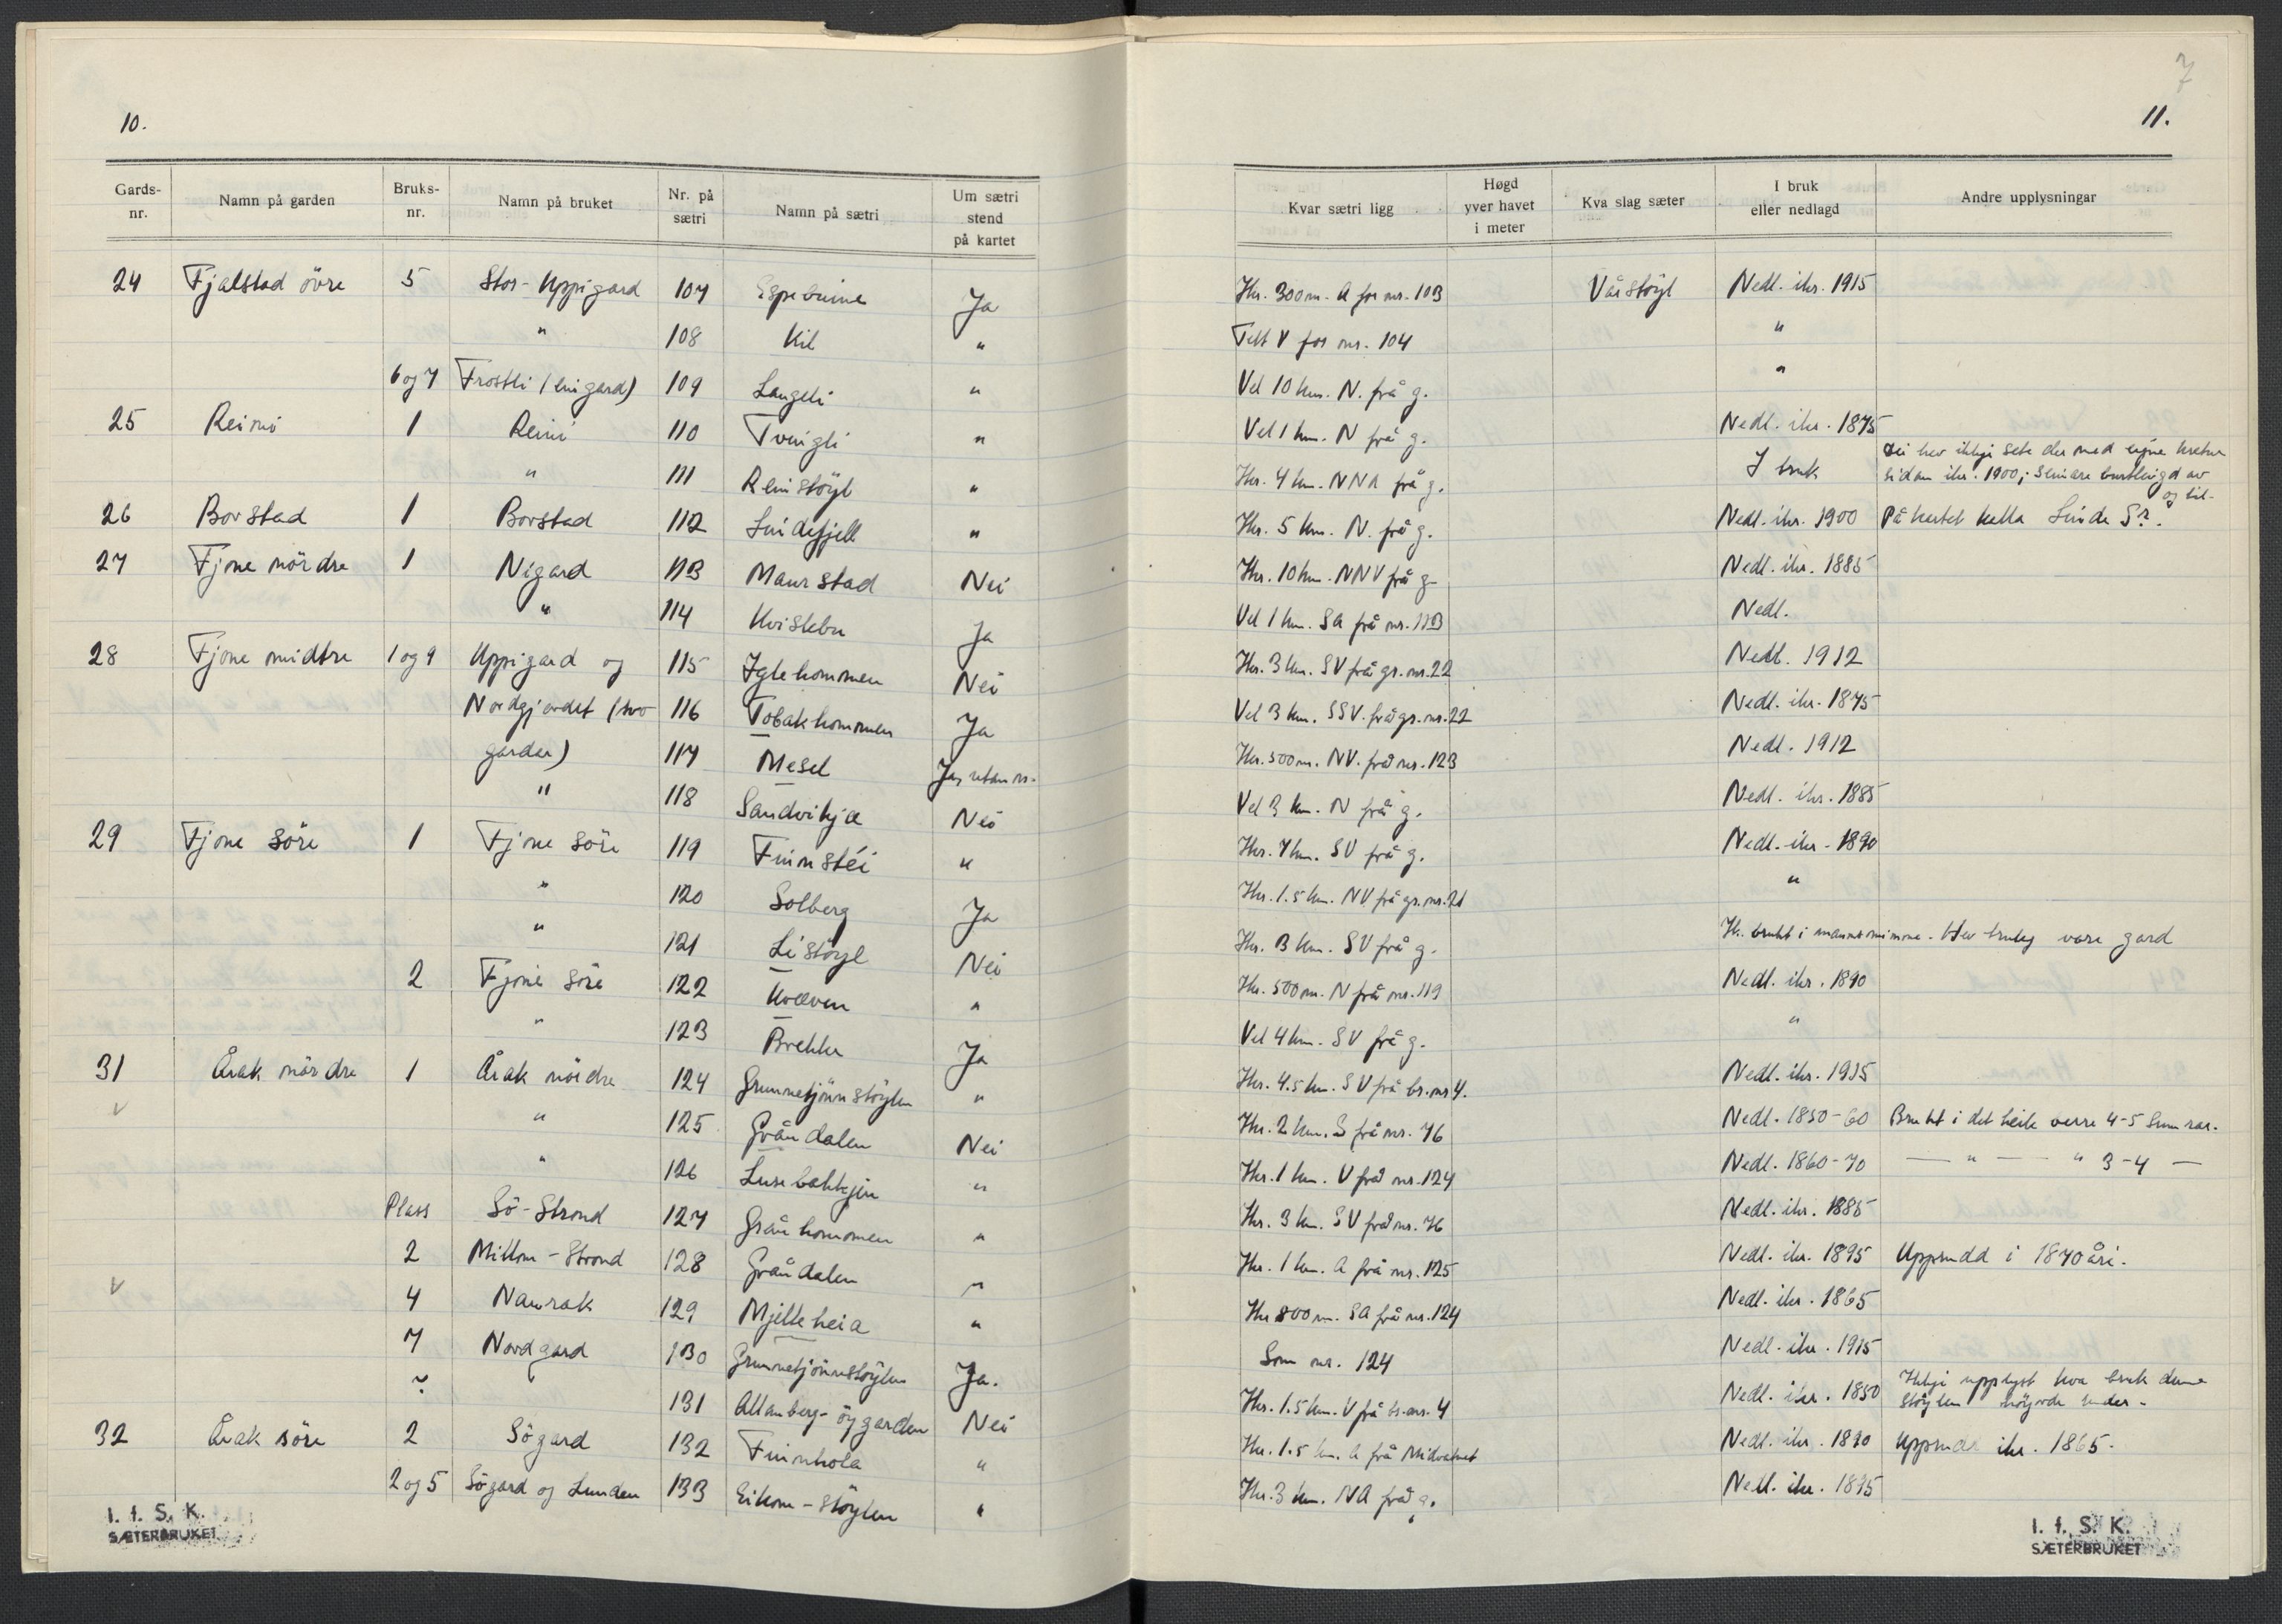 10.
Gards-nr. Namn på garden Bruks-nr. Namn på bruket Nr. på sætri Namn på sætri Um sætri stend på kartet
24 Fjalstad övre 5 Stor-Uppigard 107 Espebuine Ja
" 108 Kil "
6 og 7 Frostli (ein gard) 109 Langeli "
25 Reimi 1 Reini 110 Tvingli "
" 111 Reinstöyl "
26 Borstad 1 Borstad 112 Lindefjell "
27 Fjone nördre 1 Nigard 113 Maurstad Nei
" 114 Kvistebu Ja
28 Fjone midtre 1 og 9 Uppigard og 115 Iglehommen Nei
Nordgjerdet (two 116 Tobakhommen Ja
gardar) 117 Mesel Ja, utan nr.
" 118 Sandvikjæ Nei
29 Fjone söre 1 Fjone söre 119 Finnstéi "
" 120 Solberg Ja
" 121 Listöyl Nei
2 Fjone söre 122 Kvæven "
" 123 Brekke Ja
31 Årak nördre 1 Årak nördre 124 Grunnetjönnstöylen "
" 125 Gråndalen Nei
" 126 Lusebakkjin "
Plass Sö-Strond 127 Grånhommen "
2 Mittom-Strond 128 Gråndalen "
4 Namrak 129 Mjelteheia "
7 Nordgard 130 Grunnetjönnstöylen Ja.
? 131 Attanberg-öygarden Nei
32 Årak söre 2 Sögard 132 Finnhola "
2 og 5 Sögard og Lunden 133 Eikom-Stöylen "
I. f. S. K.
SÆTERBRUKET
7
11.
Kvar sætri ligg Høgd yver havet i meter Kva slag sæter I bruk eller nedlagd Andre upplysningar
Ikr. 300 m. A for nr. 103 Vårstöyl Nedl. ikr. 1915
Tett V for nr. 104 "
Vel 10 km. N. frå g. "
Vel 1 km. N frå g. Nedl. ikr. 1875
Ikr. 4 km. NNA frå g. I bruk Dei hev ikkje sete der med eigne
sidan ikr. 1900; seinare burtleigd av
og til.
Ikr. 5 km. N. frå g. Nedl. ikr. 1900 På kartet kalla Linde Sr.
Ikr. 10 km. NNV frå g. Nedl. ikr. 1885
Vel 1 km. SA frå nr. 113 Nedl.
Ikr. 3 km. SV frå gr. nr. 22 Nedl. 1912
Vel 3 km. SSV. frå gr. nr. 22 Nedl. ikr. 1875
Ikr. 500 m. NV. frå nr. 123 Nedl. 1912
Vel 3 km. N frå g. Nedl. ikr. 1885
Ikr. 7 km. SV frå g. Nedl. ikr. 1890
Ikr. 1.5 km. NV frå gr. nr. 21 "
Ikr. 3 km. SV frå g. Ik. brukt i mannsminne. Hev truleg vore gard
Ikr. 500 m. N frå nr. 119 Nedl. ikr. 1890
Vel 4 km. SV frå g. "
Ikr. 4.5 km. SV frå br. nr 4. Nedl. ikr. 1915
Ikr. 2 km. S frå nr. 76 Nedl. 1850-60 Brukt i det heile verre 4-5 sumrar.
Ikr. 1 km. V frå nr. 124 Nedl. 1860-70 — " — " 3-4 —
Ikr. 3 km. SV frå nr. 76 Nedl. ikr. 1885
Ikr. 1 km. A frå nr. 125 Nedl. ikr. 1895 Upprudd i 1870 åri.
Ikr 800 m. SA frå nr. 124 Nedl. ikr. 1865
Som nr. 124 Nedl. ikr. 1915
Ikr. 1.5 km. V frå br. nr. 4 Nedl. ikr. 1850 Ikkje upplyst kva bruk denne
stöylen höyrde under.
Ikr. 1.5 km. A frå Midvatnet Nedl. ikr. 1890 Upprudd ikr. 1865.
Ikr. 3 km. NA frå g. Nedl. ikr. 1895
I. f. S. K.
SÆTERBRUKET